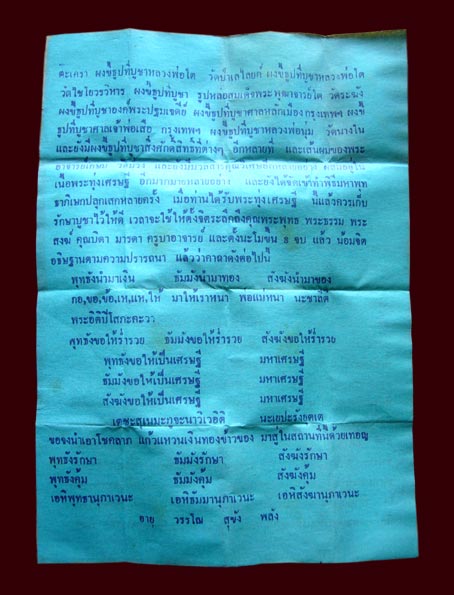 ตะเครา ผงขี้ธูปที่บูชาหลวงพ่อโต วัดป่าเลไลยก์ ผงขี้ธูปที่บูชาหลวงพ่อโต
วัดไชโยวรวิหาร ผงขี้ธูปที่บูชา รูปหล่อสมเด็จพระพุฒาจารย์โต วัดระฆัง
ผงขี้ธูปที่บูชาองค์พระปฐมเจดีย์ ผงขี้ธูปที่บูชาศาลหลักเมือง กรุงเทพฯ ผงขี้
ธูปที่บูชาศาลเจ้าพ่อเสือ กรุงเทพฯ ผงขี้ธูปที่บูชาหลวงพ่อนุ่ม วัดนางใน
และยังมีผงขี้ธูปที่บูชาสิ่งศักดิ์สิทธิ์ที่ต่างๆ อีกหลายที่ และเส้นผมของพระ
อาจารย์เกษม
เนื้อพระทุ่งเศรษฐี อีกมากมายหลายอย่าง และยังได้จัดเข้าทำพิธีมหาพุท
ธาภิเษกปลุกเสกหลายครั้ง เมื่อท่านได้รับพระทุ่งเศรษฐี นี้แล้วควรเก็บ
รักษาบูชาไว้ให้ดี เวลาจะใช้ให้ตั้งจิตระลึกถึงคุณพระพุทธ พระธรรม พระ
สงฆ์ คุณบิดา มารดา ครูบาอาจารย์ และตั้งนะโมขึ้น ๓ จบ แล้ว น้อมจิต
อธิษฐานตามความปรารถนา แล้วว่าคาถาดังต่อไปนี้
พุทธังนำมาเงิน ธัมมังนำมาทอง สังฆังนำมาของ
กอ,ขอ,ข้อ,เห,แห,ให้ มาให้เราหนา พ่อแม่หนา นะชาลีติ
พระอิติปิโสภะคะวา
พุทธังขอให้ร่ำรวย ธัมมังขอให้ร่ำรวย สังฆังขอให้ร่ำรวย
พุทธังขอให้เป็นเศรษฐี มหาเศรษฐี
ธัมมังขอให้เป็นเศรษฐี มหาเศรษฐี
สังฆังขอให้เป็นเศรษฐี มหาเศรษฐี
เตชะสุเนมะภูจะนาวิเวอิติ นะเยปะรังยุตเต
ขอจงนำเอาโชคลาภ แก้วแหวนเงินทองข้าวของ มาสู่ในสถานที่นี้ด้วยเทอญ
พุทธังรักษา ธัมมังรักษา สังฆังรักษา
พุทธังคุ้ม ธัมมังคุ้ม สังฆังคุ้ม
เอหิพุทธานุภาเวนะ เอหิธัมมานุภาเวนะ เอหิสังฆานุภาเวนะ
อายุ วรรโณ สุขัง พลัง